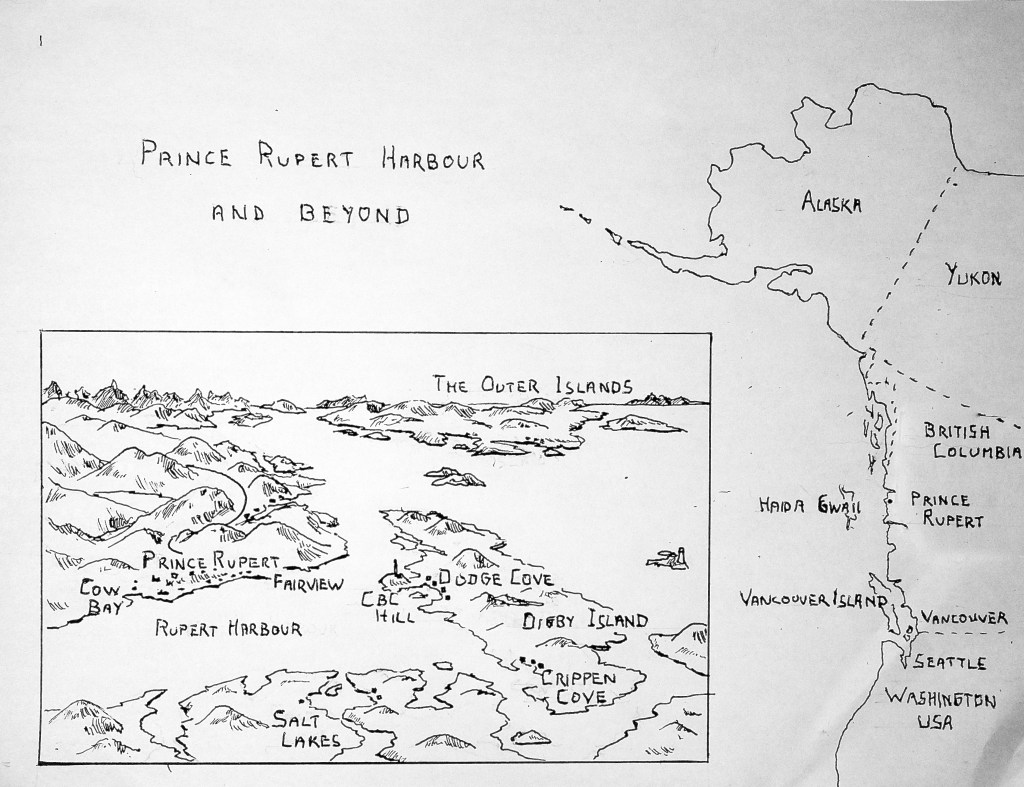 PRINCE RUPERT HARBOUR
AND BEYOND
ALASKA
YUKON
THE OUTER ISLANDS
BRITISH
COLUMBIA
HAIDA GWAII
PRINCE
RUPERT
PRINCE RUPERT
FAIRVIEW
COW
BAY
DODGE COVE
CBC
HILL
VANCOUVER ISLAND
VANCOUVER
RUPERT HARBOUR
DIGBY ISLAND
SEATTLE
CRIPPEN
COVE
WASHINGTON
USA
SALT
LAKES